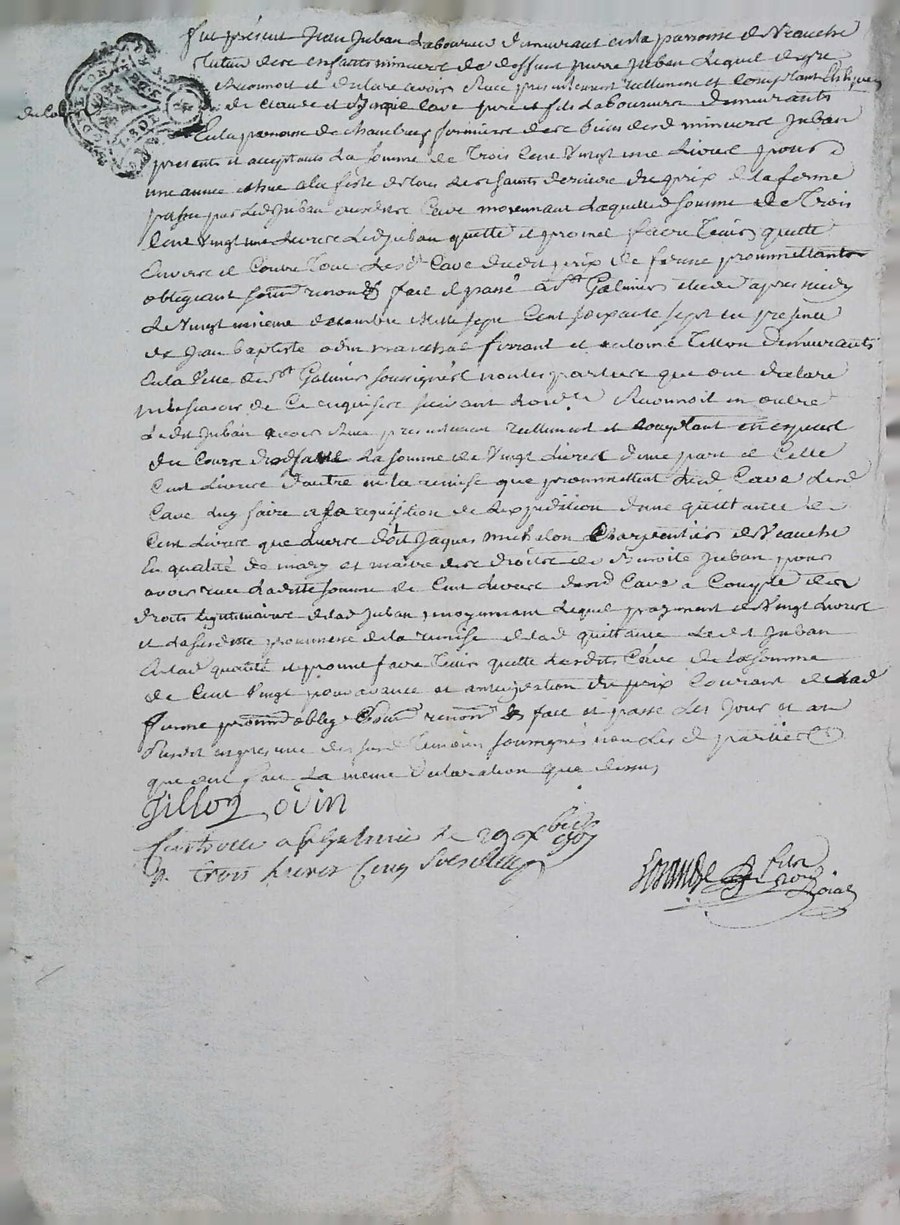 fut présent Jean Juban Laboureur demeurant en la parroisse de Veauche
tuteur des enfants mineurs de deffunt pierre Juban Lequel de gré
Reconnoit et declare avoir Receu presentement reellement et comptant en especes
du cours de Claude et Jacque Cave pere et fils Laboureurs demeurants
En la paroisse de Chambeuf fermiers des biens desd mineurs Juban
presents et acceptants La somme de Trois Cent Vingt une Livres pour
une année echue a la feste de tous Les Saints derniere du prix de la ferme
passée par Led Juban auxdits Cave moyennant Laquelle somme de Trois
Cent Vingt une Livres Led Juban quitte et promet faire Tenir quitte
Envers et Contre Tous Lesdts Cave dudit prix de ferme promettants
obligeant soum renond fait et passé a St Galmier etude apres midy
Le Vingt decembre mille sept Cent soixante sept en presence
de Jean baptiste odin marechal ferrant et antoine Tillon demeurants
En la Ville de St Galmier soussignés non les parties que ont declaré
ne scavoir de Ce enquises suivant Lord Reconnoit en outre
Ledit Juban avoir Receu presentement reellement et comptant en especes
du Cours La somme de Vingt Livres d'une part et Celle
Cent Livres d'autre en la remise que promettent Lesd Cave
Cave Luy faire a sa requisition de Lexpedition d'une quittance de
Cent Livres que Leurs doit Jaques michalon Charpentier de Veauche
En qualité de mary et maitre des droits de Benoite Juban pour
avoir receu Ladite somme de Cent Livres desd Cave a Compte des
droits legitimaires de lad Juban moyennant Lequel payement de Vingt Livres
et La susditte promesse de la remise de lad quittance Ledit Juban
en lad qualité et promet faire Tenir quitte Lesdits Cave de la somme
de Cent Vingt pour avance et anticipation du prix Courant de Lad
ferme prom oblig soum renond fait et passé Les Jour et an
susdit en presence des susd Temoins soussignés non Lesd parties
que ont fait La meme declaration que dessus
Tillon odin
Controllé a St Galmier le 29 Xbre 1767
R. trois Livres Cinq sols